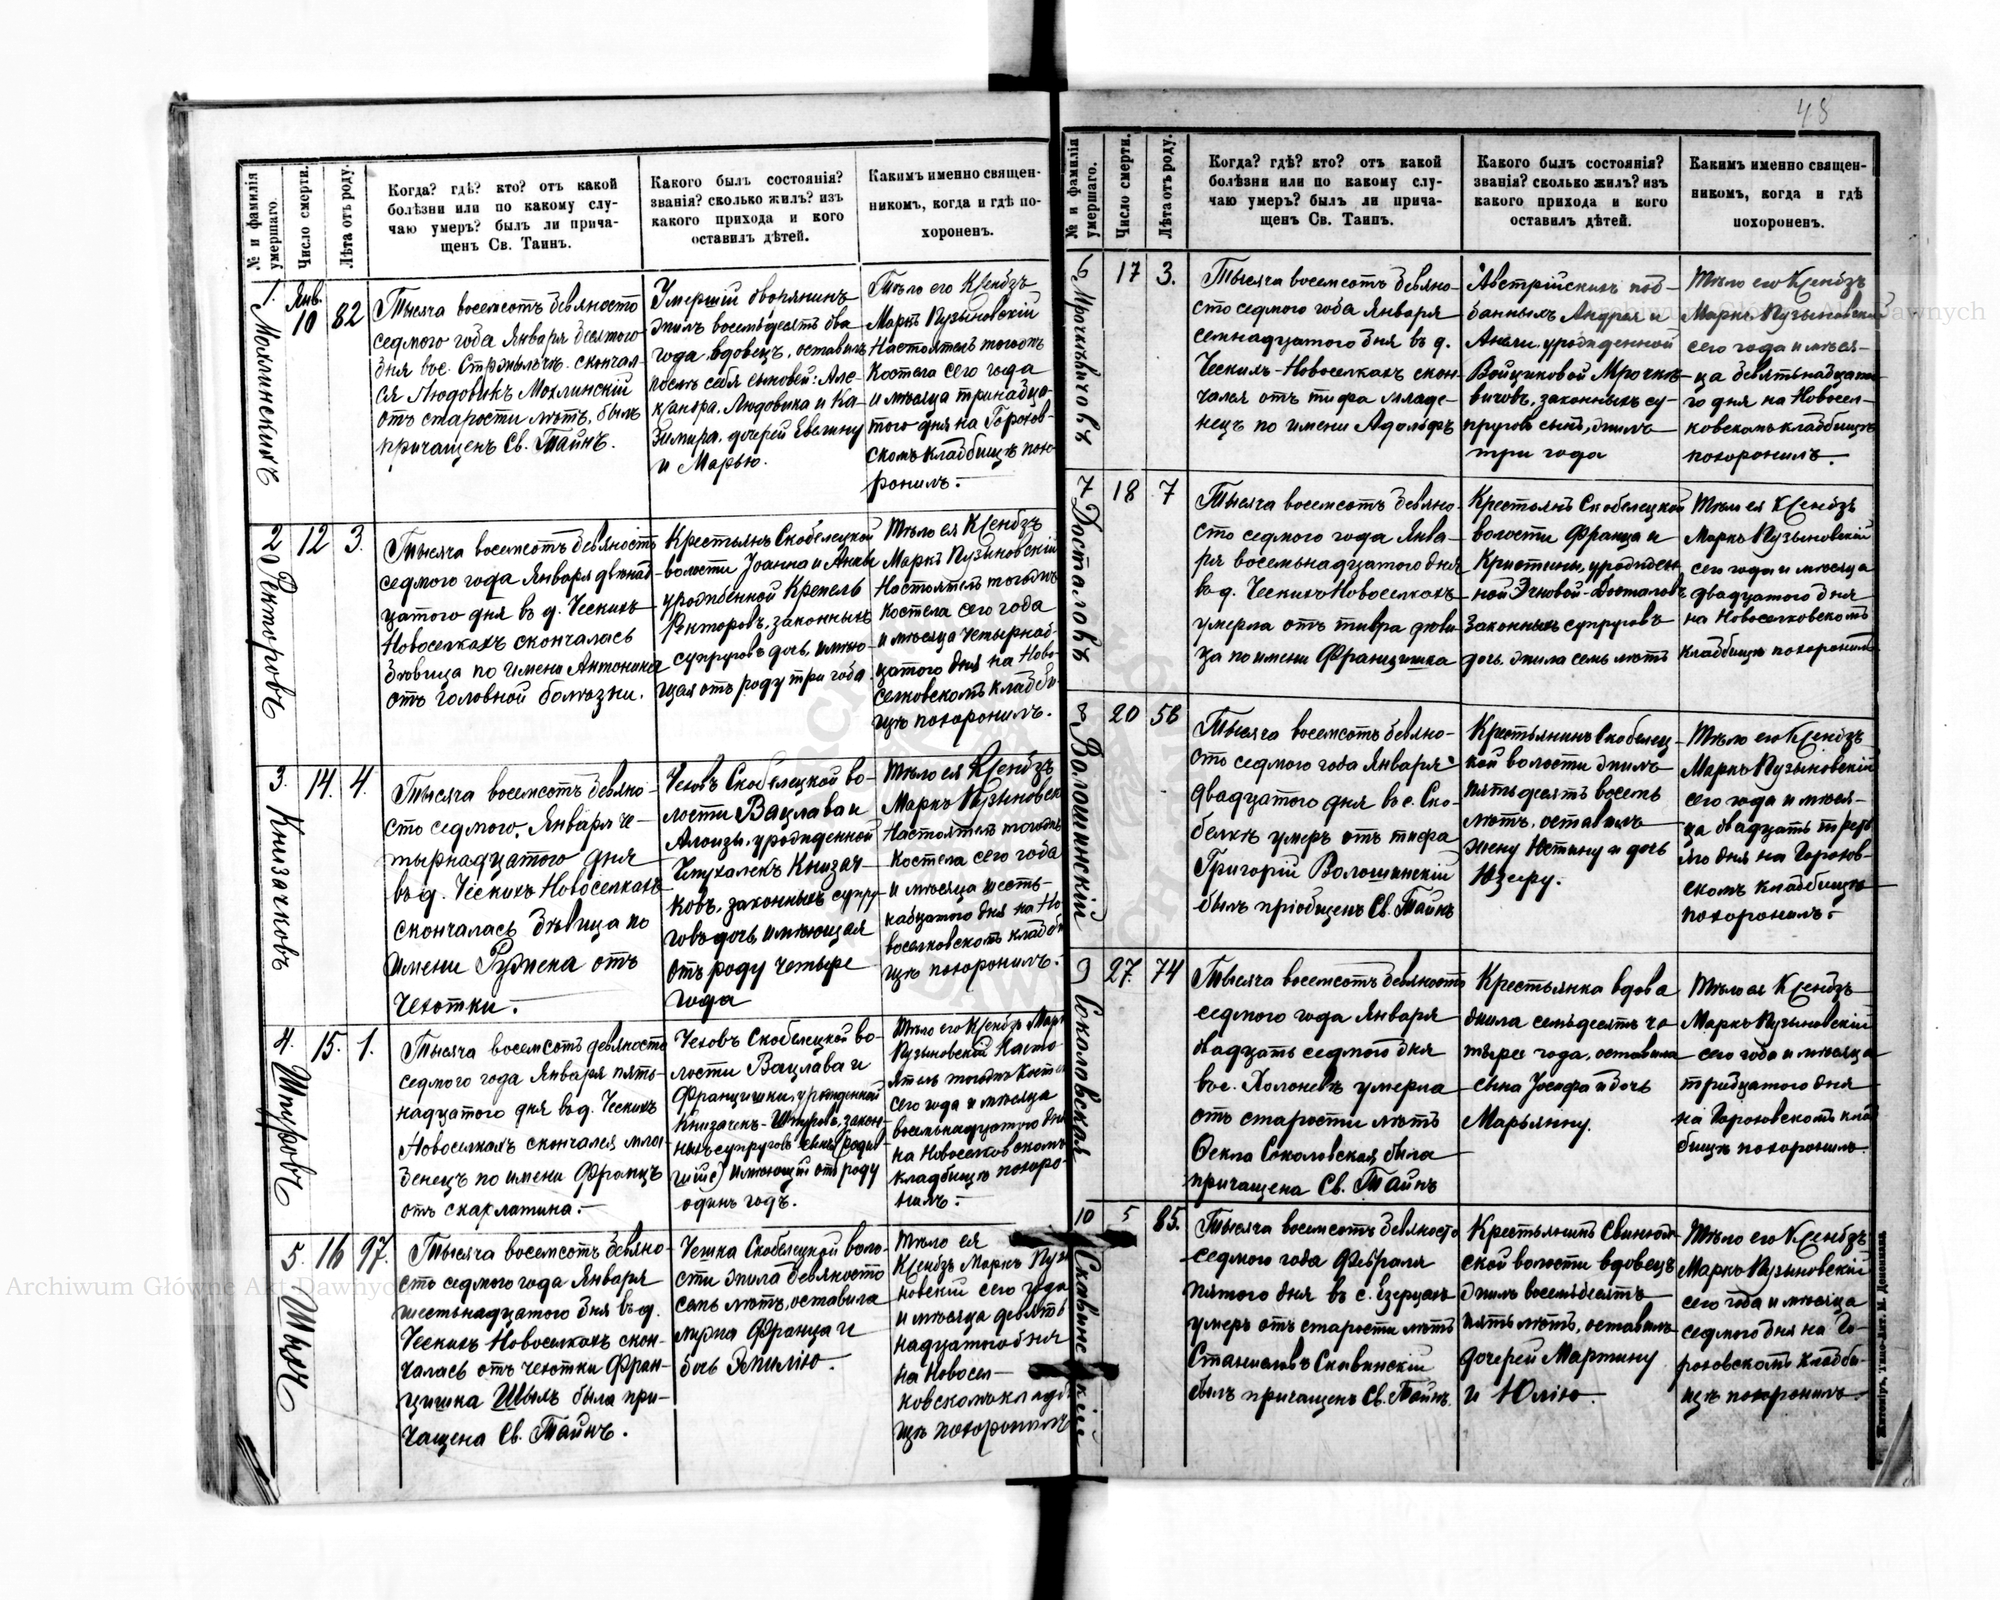 48
№ и фамилія умершаго.
Число смерти.
Лѣта отъ роду.
Когда? гдѣ? кто? отъ какой
болѣзни или по какому слу-
чаю умеръ? былъ ли прича-
щенъ Св. Таинъ.
Какого былъ состоянія?
званія? сколько жилъ? изъ
какого прихода и кого
оставилъ дѣтей.
Каким­ъ именно священ-
никомъ, когда и гдѣ по-
хороненъ.
1. Мохлинскій
Янв. 10
82
Тысяча восемсотъ девяносто
седмого года Января десятого
дня в с. скончал-
ся Людовикъ Мохлинскій
отъ старости лѣтъ, былъ
причащенъ Св. Тайнъ.
Умершій дворянинъ
жилъ восемьдесятъ два
года, вдовецъ, оставилъ
послѣ себя сыновей: Але-
ксандра, Людовика и Ка-
зимира, дочерей Евгенину
и Марью.
Тѣло его Ксендзъ
Маркъ Пузыновскій
Настоятель тогожъ
Костела сего года
и мѣсяца тринадца-
того дня на Горохов-
скомъ кладбищѣ похо-
ронилъ.
2 Ректоровъ
12
3.
Тысяча восемсотъ девяность
седмого года Января двѣнад-
цатого дня въ д. Ческихъ
Новоселкахъ скончалась
дѣвица по имени Антонина
отъ головной болѣзни.
Крестьянъ Скобелецкой
волости Іоанна и Анны
урожденной Крепель
Ректоровъ, законныхъ
супруговъ дочь, имѣю-
щая отъ роду три года
Тѣло ея Ксендзъ
Маркъ Пузыновскій
Настоятель тогожъ
Костела сего года
и мѣсяца четырнад-
цатого дня на Ново-
селковскомъ кладби-
щѣ похоронилъ.
3. Книзачковъ
14.
4.
Тысяча восемсотъ девяно-
сто седмого, Января че-
тырнадцатого дня
въ д. Ческихъ Новоселкахъ
скончалась дѣвица по
имени Ружена отъ
чехотки.
Чеховъ Скобелецкой во-
лости Вацлава и
Алоизы, урожденной
Книзач-
ковъ, законныхъ супру-
говъ дочь, имѣющая
отъ роду четыре
года
Тѣло ея Ксендзъ
Маркъ Пузыновск
Настоятель тогожъ
Костела сего года
и мѣсяца шесть-
надцатого дня на Но
воселковскомъ кладби
щѣ похоронилъ.
4.
15.
1.
Тысяча восемсотъ девяносто
седмого года Января пять-
надцатого дня въ д. Ческихъ
Новоселкахъ скончался мла-
денецъ по имени Францъ
отъ скарлатина.
Чеховъ Скобелецкой во-
лости Вацлава и
Францишки, урожденной
Книзачек- закон-
ныхъ супруговъ сынъ
имѣющій отъ роду
одинъ годъ.
Тѣло его Ксендзъ Марк
Пузыновскій Насто-
ятель тогожъ Косте
сего года и мѣсяца
восемьнадцатого дня
на Новоселковскомъ
кладбищѣ похоро-
нилъ.
5.
16
97.
Тысяча восемсотъ девяно-
сто седмого года Января
шестьнадцатого дня въ д.
Ческихъ Новоселкахъ скон-
чалась отъ чехотки Фран-
цишка была при-
чащена Св. Тайнъ.
Чешка Скобелецкой воло-
сти жила девяносто
семь лѣтъ, оставила
мужа Франца и
дочь Эмилію.
Тѣло ея
Ксендзъ Маркъ Пузы
новскій сего года
и мѣсяца девять
надцатого дня
на Новосел-
ковскомъ кладб
щѣ похоронилъ
№ и фамилія умершаго.
Число смерти.
Лѣта отъ роду.
Когда? гдѣ? кто? отъ какой
болѣзни или по какому слу-
чаю умеръ? былъ ли прича-
щенъ Св. Таинъ.
Какого былъ состоянія?
званія? сколько жилъ? изъ
какого прихода и кого
оставилъ дѣтей.
Какимъ именно священ-
никомъ, когда и гдѣ
похороненъ.
6 Мрочкѣвичовъ
17
3.
Тысяча восемсотъ девяно-
сто седмого года Января
семнадцатого дня въ д.
Ческихъ-Новоселкахъ скон-
чался отъ тифа младе-
нецъ по имени Адольфъ
Австрійскихъ под-
данныхъ Андрея и
Анели, урожденной
Войциковой Мрочкѣ-
вичовъ, законныхъ су-
пруговъ сынъ, жилъ
три года
Тѣло его Ксендзъ
Маркъ Пузыновскій
сего года и мѣся-
ца девятьнадцата-
го дня на Новосел-
ковскомъ кладбищѣ
похоронилъ.
7 Досталовъ
18
7
Тысяча восемсотъ девяно-
сто седмого года Янва-
ря восемьнадцатого дня
въ д. Ческихъ Новоселкахъ
умерла отъ тифа дѣви-
ца по имени Францишка
Крестьянъ Скобелецкой
волости Франца и
Кристины, урожден-
ной Досталовъ
законныхъ супруговъ
дочь, жила семь лѣтъ
Тѣло ея Ксендзъ
Маркъ Пузыновскій
сего года и мѣсяца
двадцатого дня
на Новоселковскомъ
кладбищѣ похоронилъ
8 Волошинскій
20
58
Тысяча восемсотъ девяно-
сто седмого года Января
двадцатого дня в с. Ско-
белкѣ умеръ отъ тифа
Григорій Волошинскій
былъ пріобщенъ Св. Тайнъ
Крестьянинъ Скобелец-
кой волости жилъ
пятьдесятъ восемь
лѣтъ, оставилъ
жену Юстину и дочь
Юзефу.
Тѣло его Ксендзъ
Маркъ Пузыновскій
сего года и мѣся-
ца двадцать треть
яго дня на Горохов-
скомъ кладбищѣ
похоронилъ.
9 Соколовская
27.
74
Тысяча восемсотъ девяность
седмого года Января
двадцать седмого дня
въ с. Холоневѣ умерла
отъ старости лѣтъ
Ѳекла Соколовская была
причащена Св. Тайнъ
Крестьянка вдова
жила семьдесятъ че
тыре года, оставила
сына Іосифа и дочь
Марьянну.
Тѣло ея Ксендзъ
Маркъ Пузыновскій
сего года и мѣсяца
тридцатого дня
на Гороховскомъ клад
бищѣ похоронилъ
10 Скавинскій
5
85.
Тысяча восемсотъ девяносто
седмого года Февраля
пятого дня въ с. Езерцахъ
умеръ отъ старости лѣтъ
Станиславъ Скавинскій
былъ причащенъ Св. Тайнъ.
Крестьянинъ Свинюх-
ской волости вдовецъ
жилъ восемьдесятъ
пять лѣтъ, оставилъ
дочерей Мартину
и Юлію.
Тѣло его Ксендзъ
Маркъ Пузыновскій
сего года и мѣсяца
седмого дня на Го-
роховскомъ кладби-
щѣ похоронилъ
Житоміръ, Типо-Лит. М. Дененмана.
Archiwum Główne Akt Dawnych
Archiwum Główne Akt Dawnych